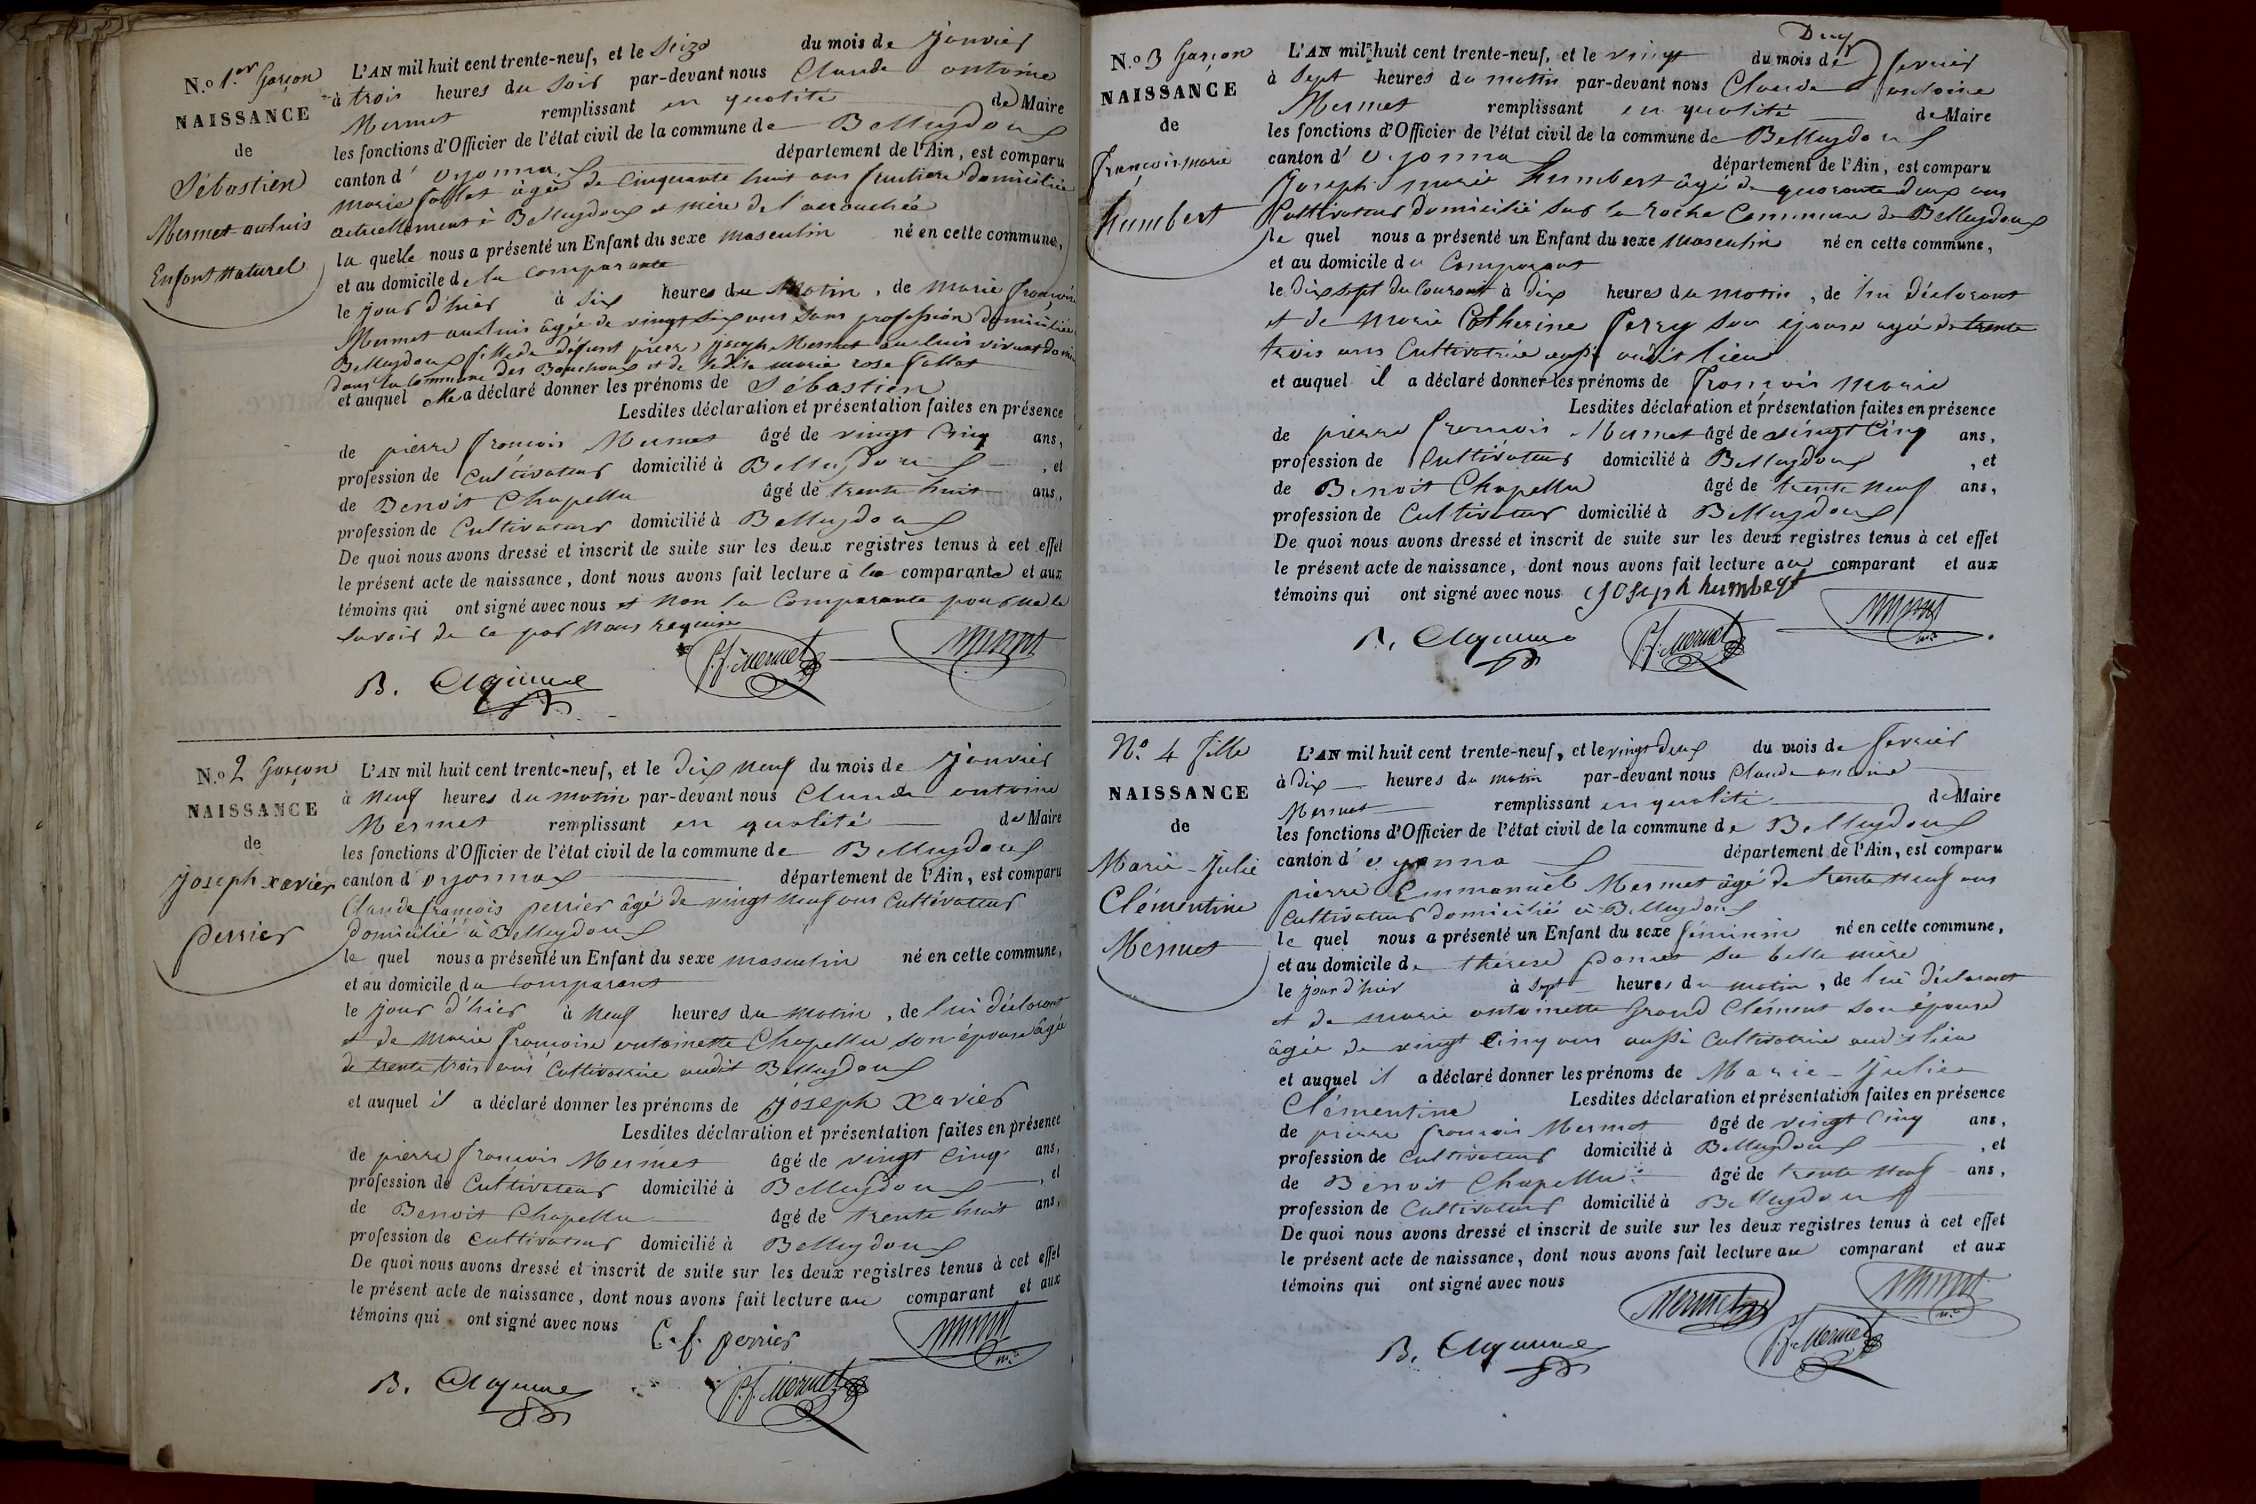 N.o 1.er Garçon
NAISSANCE
de
Sébastien
Mermet auluis
Enfant Naturel
L'AN mil huit cent trente-neuf, et le Seize du mois de Janvier
à trois heures du Soir par-devant nous Claude antoine
Mermet remplissant en qualité de Maire
les fonctions d'Officier de l'état civil de la commune de Belleydoux
canton d' oyonnax département de l'Ain, est comparu
marie rose âgée de Cinquante huit ans domiciliée
actuellement à Belleydoux et mère de l'accouchée
la quelle nous a présenté un Enfant du sexe masculin né en cette commune,
et au domicile de la comparante
le jour d'hier à Six heures du Matin, de marie françoise
Mermet auluis âgée de vingt six ans Sans profession domiciliée
Belleydoux fille de défunt pierre joseph Mermet auluis vivant
dans la commune des Bouchoux et de ladite marie rose
et auquel elle a déclaré donner les prénoms de Sébastien
Lesdites déclaration et présentation faites en présence
de pierre françois Mermet âgé de vingt Cinq ans,
profession de cultivateur domicilié à Belleydoux, et
de Benoit Chapellu âgé de trente huit ans,
profession de Cultivateur domicilié à Belleydoux
De quoi nous avons dressé et inscrit de suite sur les deux registres tenus à cet effet
le présent acte de naissance, dont nous avons fait lecture à la comparante et aux
témoins qui ont signé avec nous et non la Comparante pour ne le
savoir de ce par Nous requise
P. f. Mermet
B.
N.o 2 Garçon
NAISSANCE
de
Joseph xavier
perrier
L'AN mil huit cent trente-neuf, et le dix neuf du mois de Janvier
à Neuf heures du matin par-devant nous Claude antoine
Mermet remplissant en qualité de Maire
les fonctions d'Officier de l'état civil de la commune de Belleydoux
canton d' oyonnax département de l'Ain, est comparu
Claude françois perrier âgé de vingt neuf ans Cultivateur
domicilié à Belleydoux
le quel nous a présenté un Enfant du sexe masculin né en cette commune,
et au domicile du Comparant
le jour d'hier à Neuf heures du Matin, de lui déclarant
et de Marie françoise antoinette Chapellu son épouse âgée
de trente trois ans Cultivatrice audit Belleydoux
et auquel il a déclaré donner les prénoms de Joseph xavier
Lesdites déclaration et présentation faites en présence
de pierre françois Mermet âgé de vingt Cinq ans,
profession de Cultivateur domicilié à Belleydoux, et
de Benoit Chapellu âgé de trente huit ans,
profession de cultivateur domicilié à Belleydoux
De quoi nous avons dressé et inscrit de suite sur les deux registres tenus à cet effet
le présent acte de naissance, dont nous avons fait lecture au comparant et aux
témoins qui ont signé avec nous
C. f. perrier
B.
P. f. Mermet
N.o 3 Garçon
NAISSANCE
de
François marie
humbert
Deux
L'AN mil huit cent trente-neuf, et le vingt du mois de fevrier
à Sept heures du matin par-devant nous Claude antoine
Mermet remplissant en qualité de Maire
les fonctions d'Officier de l'état civil de la commune de Belleydoux
canton d' oyonnax département de l'Ain, est comparu
Joseph marie humbert âgé de quarante deux ans
Cultivateur domicilié Sur la roche Commune de Belleydoux
le quel nous a présenté un Enfant du sexe Masculin né en cette commune,
et au domicile du Comparant
le dix sept du Courant à dix heures du matin, de lui déclarant
et de Marie Catherine perry son épouse agée de trente
trois ans Cultivatrice aussi audit lieu
et auquel il a déclaré donner les prénoms de François marie
Lesdites déclaration et présentation faites en présence
de pierre françois Mermet âgé de vingt Cinq ans,
profession de Cultivateur domicilié à Belleydoux, et
de Benoit Chapellu âgé de trente neuf ans,
profession de Cultivateur domicilié à Belleydoux
De quoi nous avons dressé et inscrit de suite sur les deux registres tenus à cet effet
le présent acte de naissance, dont nous avons fait lecture au comparant et aux
témoins qui ont signé avec nous joseph humbert
B.
P. f. Mermet
N.o 4 fille
NAISSANCE
de
Marie - Julie
Clémentine
Mermet
L'AN mil huit cent trente-neuf, et le vingt deux du mois de fevrier
à dix heures du matin par-devant nous Claude antoine
Mermet remplissant en qualité de Maire
les fonctions d'Officier de l'état civil de la commune de Belleydoux
canton d' oyonnax département de l'Ain, est comparu
pierre Emmanuel Mermet âgé de trente neuf ans
Cultivateur domicilié à Belleydoux
le quel nous a présenté un Enfant du sexe féminin né en cette commune,
et au domicile de thérese poncet sa belle mère
le jour d'hier à Sept heures du matin, de lui déclarant
et de marie antoinette Grand Clément son épouse
âgée de vingt Cinq ans aussi Cultivatrice audit lieu
et auquel il a déclaré donner les prénoms de Marie - Julie
Clémentine Lesdites déclaration et présentation faites en présence
de pierre françois Mermet âgé de vingt Cinq ans,
profession de Cultivateur domicilié à Belleydoux, et
de Benoit Chapellu âgé de trente neuf ans,
profession de Cultivateur domicilié à Belleydoux
De quoi nous avons dressé et inscrit de suite sur les deux registres tenus à cet effet
le présent acte de naissance, dont nous avons fait lecture au comparant et aux
témoins qui ont signé avec nous
Mermet
B.
P. f. Mermet